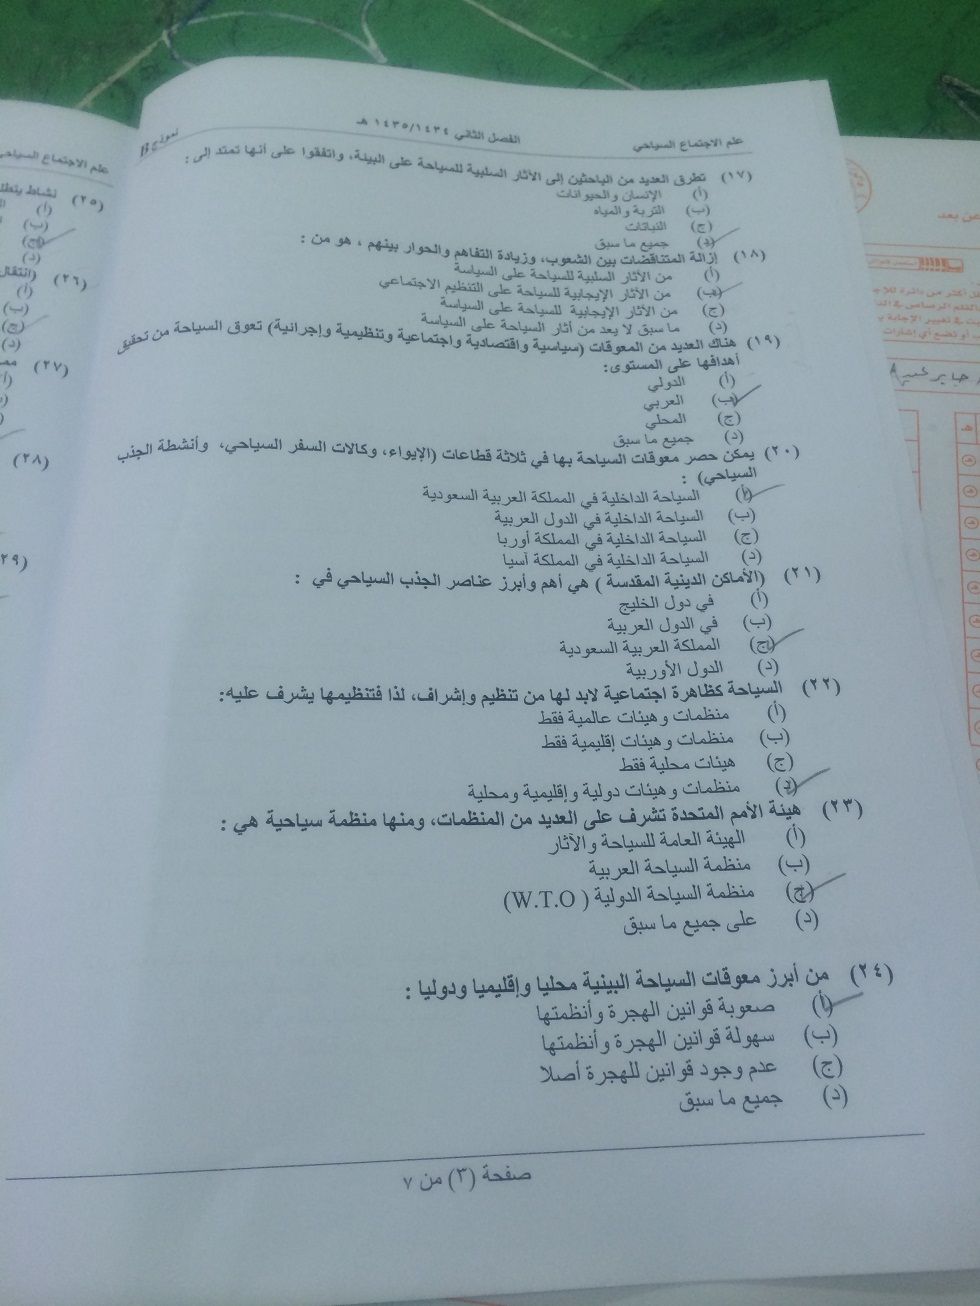 علم الاجتماع السياحي
الفصل الثاني ١٤٣٥/١٤٣٤ هـ
نموذج B
(١٧) تطرق العديد من الباحثين إلى الآثار السلبية للسياحة على البيئة، واتفقوا على أنها تمتد إلى :
(أ) الإنسان والحيوانات
(ب) التربة والمياه
(ج) النباتات
(د) جميع ما سبق
(١٨) إزالة المتناقضات بين الشعوب، وزيادة التفاهم والحوار بينهم ، هو من :
(أ) من الآثار السلبية للسياحة على السياسة
(ب) من الآثار الإيجابية للسياحة على التنظيم الاجتماعي
(ج) من الآثار الإيجابية للسياحة على السياسة
(د) ما سبق لا يعد من آثار السياحة على السياسة
(١٩) هناك العديد من المعوقات (سياسية واقتصادية واجتماعية وتنظيمية وإجرائية) تعوق السياحة من تحقيق
أهدافها على المستوى:
(أ) الدولي
(ب) العربي
(ج) المحلي
(د) جميع ما سبق
(٢٠) يمكن حصر معوقات السياحة بها في ثلاثة قطاعات (الإيواء، وكالات السفر السياحي، وأنشطة الجذب
السياحي) :
(أ) السياحة الداخلية في المملكة العربية السعودية
(ب) السياحة الداخلية في الدول العربية
(ج) السياحة الداخلية في المملكة أوربا
(د) السياحة الداخلية في المملكة آسيا
(٢١) (الأماكن الدينية المقدسة ) هي أهم وأبرز عناصر الجذب السياحي في :
(أ) في دول الخليج
(ب) في الدول العربية
(ج) المملكة العربية السعودية
(د) الدول الأوربية
(٢٢) السياحة كظاهرة اجتماعية لابد لها من تنظيم وإشراف، لذا فتنظيمها يشرف عليه:
(أ) منظمات وهيئات عالمية فقط
(ب) منظمات وهيئات إقليمية فقط
(ج) هيئات محلية فقط
(د) منظمات وهيئات دولية وإقليمية ومحلية
(٢٣) هيئة الأمم المتحدة تشرف على العديد من المنظمات، ومنها منظمة سياحية هي :
(أ) الهيئة العامة للسياحة والآثار
(ب) منظمة السياحة العربية
(ج) منظمة السياحة الدولية ( W.T.O)
(د) على جميع ما سبق
(٢٤) من أبرز معوقات السياحة البينية محليا وإقليميا ودوليا :
(أ) صعوبة قوانين الهجرة وأنظمتها
(ب) سهولة قوانين الهجرة وأنظمتها
(ج) عدم وجود قوانين للهجرة أصلا
(د) جميع ما سبق
صفحة (٣) من ٧
علم الاجتماع السياحي
(٢٥) نشاط
(أ)
(ب)
(ج)
(د)
(٢٦) (انتقال
(أ)
(ب)
(ج)
(د)
(٢٧)
(٢٨)
(٢٩
عن بعد